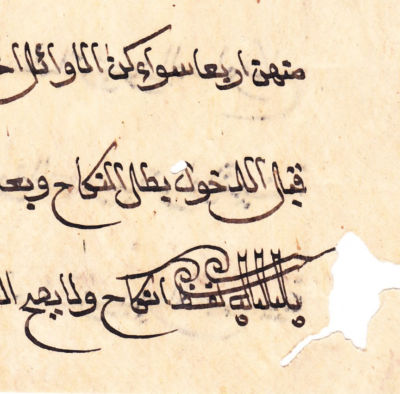 منهن اربعا سواء كن الاوائل
قبل الدخول بطل النكاح
النكاح ولا يصح